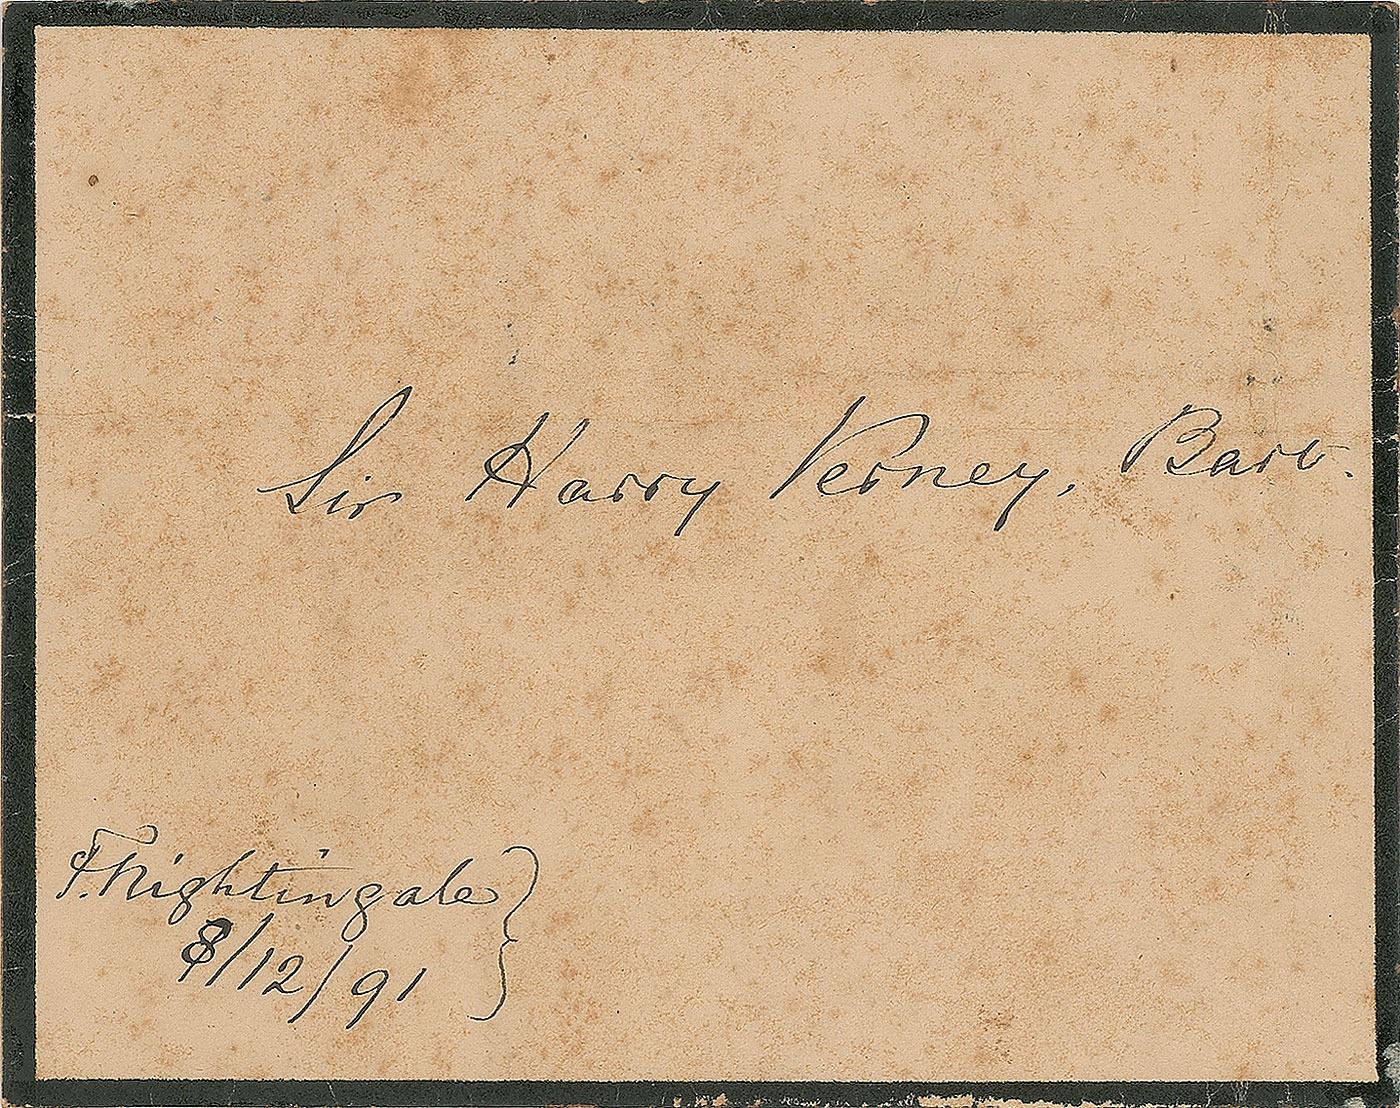 Sir Harry Verney, Bart.
F. Nightingale
8/12/91